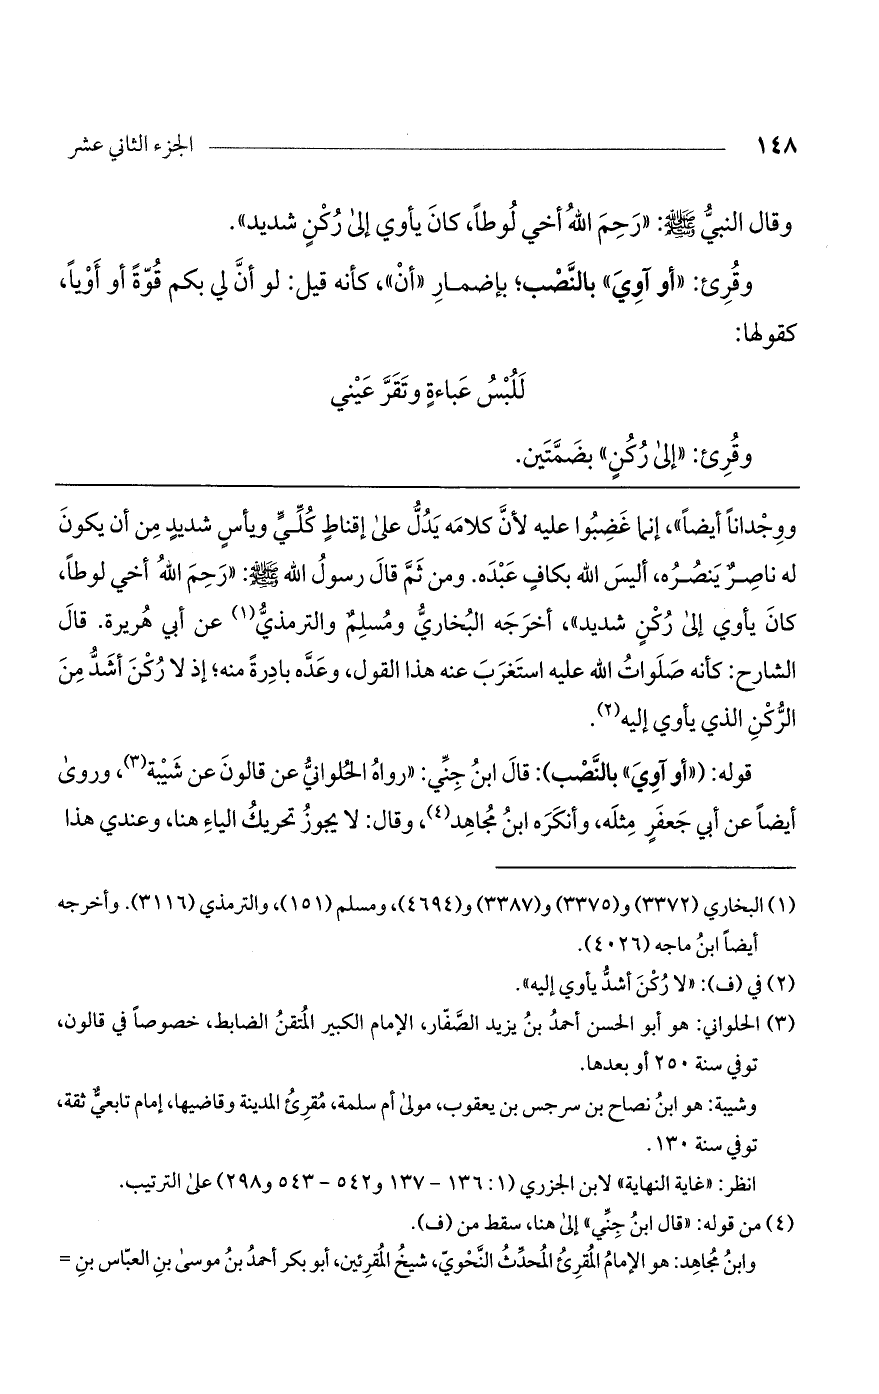 ١٤٨ الجزء الثاني عشر
وقال النبيُّ ﷺ: «رَحِمَ اللهُ أخي لُوطاً، كانَ يأوي إلىٰ رُكْنٍ شديد».
وقُرِئ: «أو آوِيَ» بالنَّصْب؛ بإضمارِ «أنْ»، كأنه قيل: لو أنَّ لي بكم قُوّةً أو أَوْياً،
كقولها:
لَلُبْسُ عَباءةٍ وتَقَرَّ عَيْني
وقُرِئ: «إلىٰ رُكُنٍ» بضَمَّتَين.
ووِجْداناً أيضاً»، إنما غَضِبُوا عليه لأنَّ كلامَه يَدُلُّ علىٰ إقناطٍ كُلِّيٍّ ويأسٍ شديدٍ مِن أن يكونَ
له ناصِرٌ يَنصُرُه، أليسَ الله بكافٍ عَبْدَه. ومن ثَمَّ قالَ رسولُ الله ﷺ: «رَحِمَ اللهُ أخي لوطاً،
كانَ يأوي إلىٰ رُكْنٍ شديد»، أخرَجَه البُخاريُّ ومُسلِمٌ والترمذيُّ(١) عن أبي هُريرة. قالَ
الشارح: كأنه صَلَواتُ الله عليه استَغرَبَ عنه هذا القول، وعَدَّه بادِرةً منه؛ إذ لا رُكْنَ أشَدُّ مِنَ
الرُّكْنِ الذي يأوي إليه(٢).
قوله: («أو آوِيَ» بالنَّصْب): قالَ ابنُ جِنِّي: «رواهُ الحُلوانيُّ عن قالونَ عن شَيْبة(٣)، وروىٰ
أيضاً عن أبي جَعفَرٍ مِثلَه، وأنكَرَه ابنُ مُجاهِد(٤)، وقال: لا يجوزُ تحريكُ الياءِ هنا، وعندي هذا
(١) البخاري (٣٣٧٢) و(٣٣٧٥) و(٣٣٨٧) و(٤٦٩٤)، ومسلم (١٥١)، والترمذي (٣١١٦). وأخرجه
أيضاً ابنُ ماجه (٤٠٢٦).
(٢) في (ف): «لا رُكْنَ أشدُّ يأوي إليه».
(٣) الحلواني: هو أبو الحسن أحمدُ بنُ يزيد الصَّفّار، الإمام الكبير المُتقنُ الضابط، خصوصاً في قالون،
توفي سنة ٢٥٠ أو بعدها.
وشيبة: هو ابنُ نصاح بن سرجس بن يعقوب، مولىٰ أم سلمة، مُقرِئُ المدينة وقاضيها، إمام تابعيٌّ ثقة،
توفي سنة ١٣٠.
انظر: «غاية النهاية» لابن الجزري (١: ١٣٦ - ١٣٧ و٥٤٢ - ٥٤٣ و٢٩٨) علىٰ الترتيب.
(٤) من قوله: «قال ابنُ جِنِّي» إلىٰ هنا، سقط من (ف).
وابنُ مُجاهِد: هو الإمامُ المُقرِئُ المُحدِّثُ النَّحْويّ، شيخُ المُقرِئين، أبو بكر أحمدُ بنُ موسىٰ بنِ العبّاس بنِ =